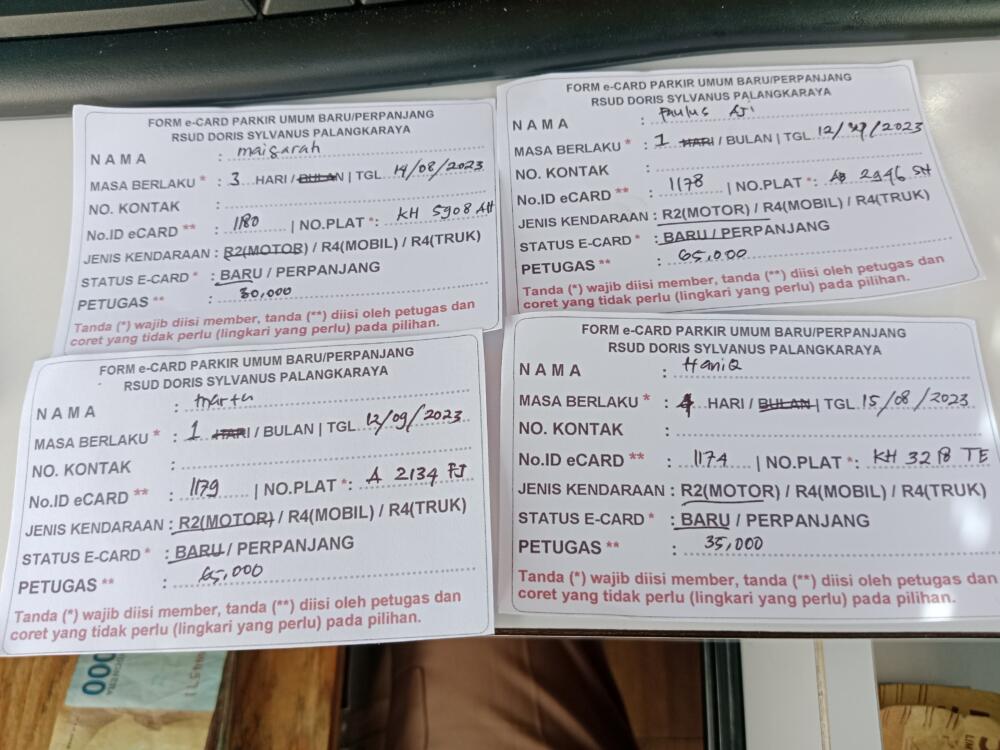 FORM e-CARD PARKIR UMUM BARU/PERPANJANG
RSUD DORIS SYLVANUS PALANGKARAYA
NAMA : maisarah
MASA BERLAKU * : 3 HARI / BULAN | TGL 14/08/2023
NO. KONTAK :
No.ID eCARD ** : 1180 | NO.PLAT *: KH 5908 AH
JENIS KENDARAAN : R2(MOTOR) / R4(MOBIL) / R4(TRUK)
STATUS E-CARD * : BARU / PERPANJANG
PETUGAS ** : 30,000
Tanda (*) wajib diisi member, tanda (**) diisi oleh petugas dan
coret yang tidak perlu (lingkari yang perlu) pada pilihan.
FORM e-CARD PARKIR UMUM BARU/PERPANJANG
RSUD DORIS SYLVANUS PALANGKARAYA
NAMA : Paulus Aji
MASA BERLAKU * : 1 HARI / BULAN | TGL 12/ /2023
NO. KONTAK :
No.ID eCARD ** : 1178 | NO.PLAT *: 2946 SH
JENIS KENDARAAN : R2(MOTOR) / R4(MOBIL) / R4(TRUK)
STATUS E-CARD * : BARU / PERPANJANG
PETUGAS ** : 65,000
Tanda (*) wajib diisi member, tanda (**) diisi oleh petugas dan
coret yang tidak perlu (lingkari yang perlu) pada pilihan.
FORM e-CARD PARKIR UMUM BARU/PERPANJANG
RSUD DORIS SYLVANUS PALANGKARAYA
NAMA :
MASA BERLAKU * : 1 HARI / BULAN | TGL 12/09/2023
NO. KONTAK :
No.ID eCARD ** : 1179 | NO.PLAT *: A 2134 FJ
JENIS KENDARAAN : R2(MOTOR) / R4(MOBIL) / R4(TRUK)
STATUS E-CARD * : BARU / PERPANJANG
PETUGAS ** : 65,000
Tanda (*) wajib diisi member, tanda (**) diisi oleh petugas dan
coret yang tidak perlu (lingkari yang perlu) pada pilihan.
FORM e-CARD PARKIR UMUM BARU/PERPANJANG
RSUD DORIS SYLVANUS PALANGKARAYA
NAMA : HaniQ
MASA BERLAKU * : 4 HARI / BULAN | TGL 15/08/2023
NO. KONTAK :
No.ID eCARD ** : 1174 | NO.PLAT *: KH 3218 TE
JENIS KENDARAAN : R2(MOTOR) / R4(MOBIL) / R4(TRUK)
STATUS E-CARD * : BARU / PERPANJANG
PETUGAS ** : 35,000
Tanda (*) wajib diisi member, tanda (**) diisi oleh petugas dan
coret yang tidak perlu (lingkari yang perlu) pada pilihan.